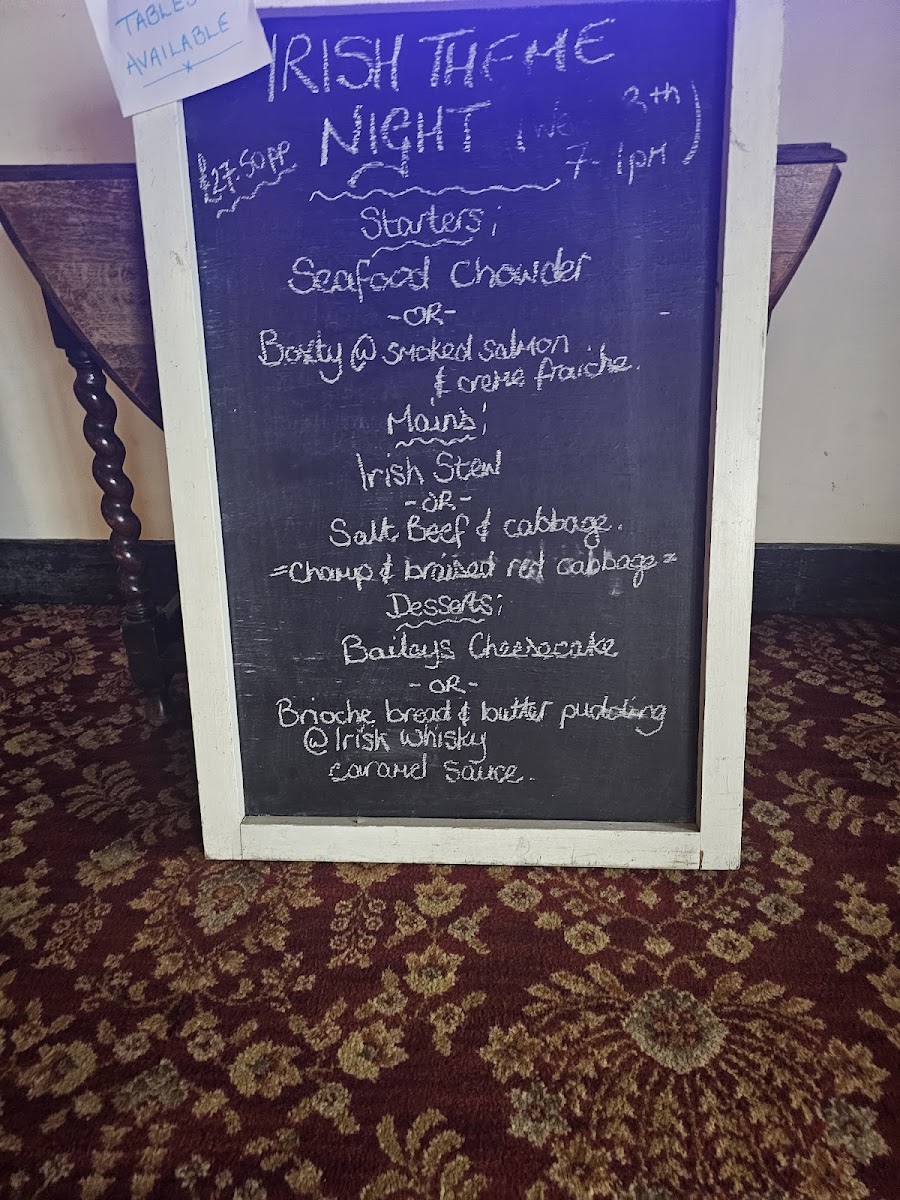 TABLES
AVAILABLE
IRISH THEME
NIGHT
£27.50pp
7- 1pm)
Starters;
Seafood Chowder
-OR-
Boxty @ smoked salmon
& creme fraiche.
Mains;
Irish Stew
-OR-
Salt Beef & cabbage.
=Champ & braised red cabbage=
Desserts;
Baileys Cheesecake
-OR-
Brioche bread & butter pudding
@ Irish whisky
caramel sauce.